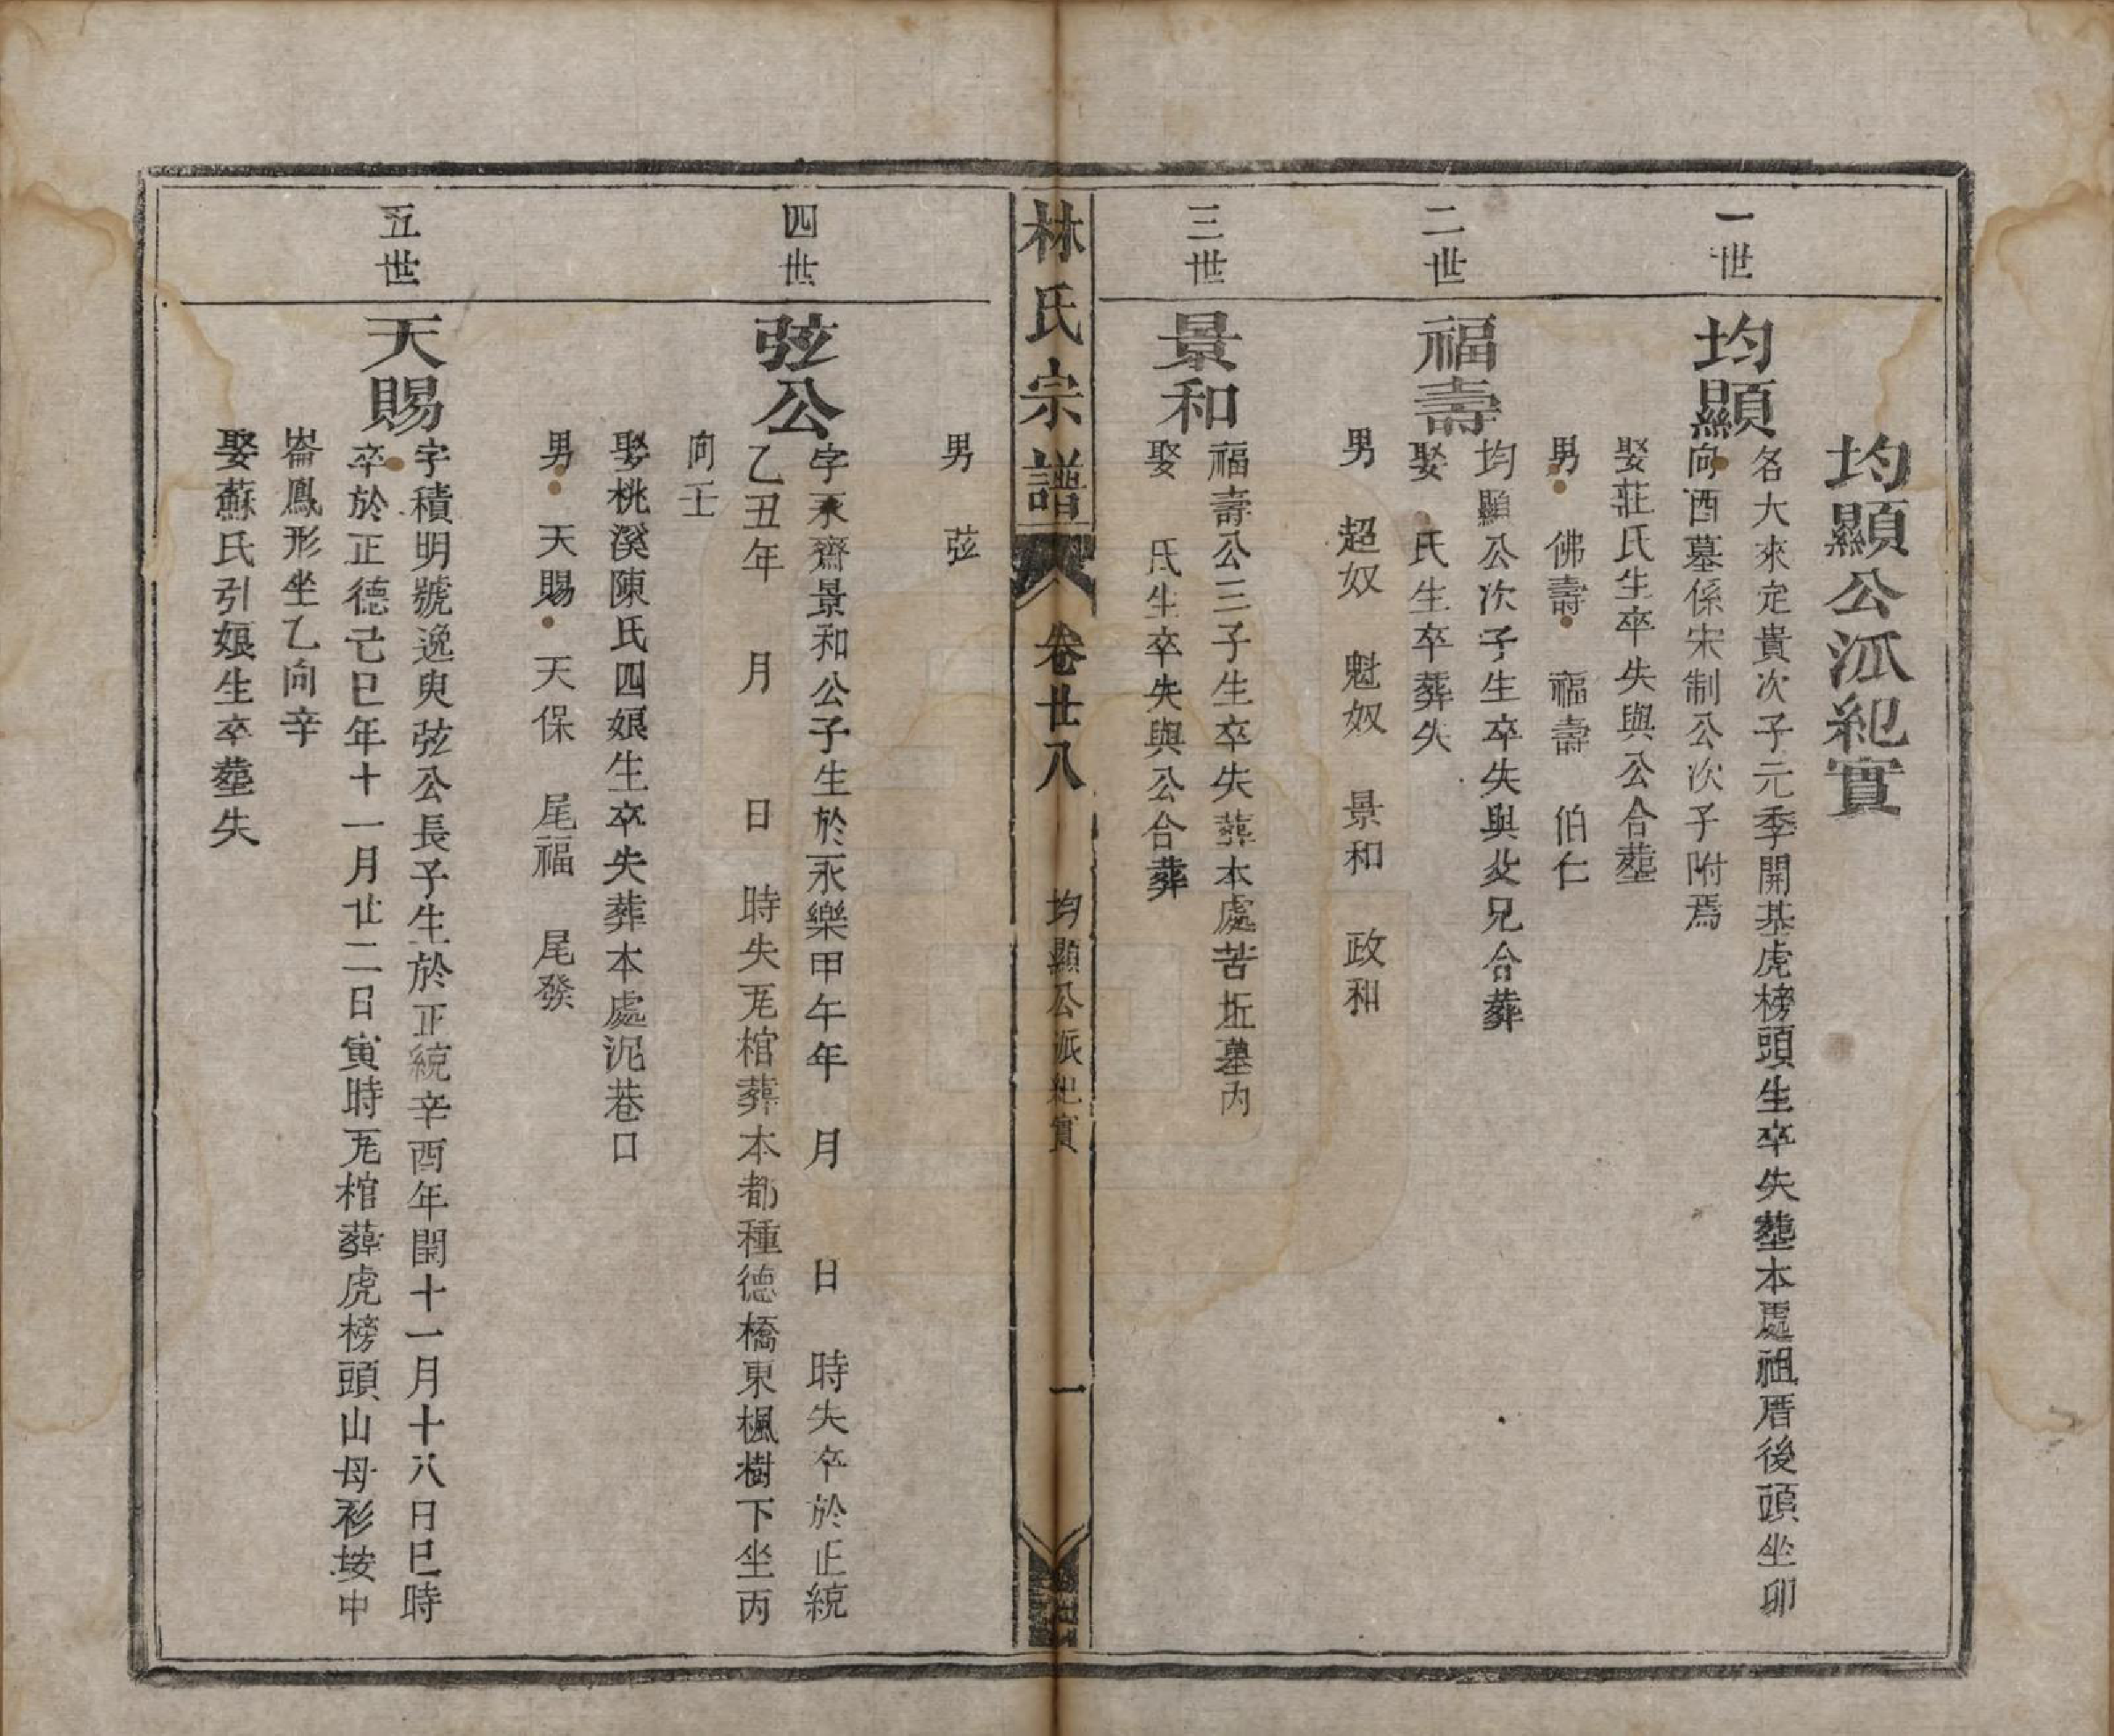 均顯公派紀實
一世
均顯
名大來定貴次子元季開基虎榜頭生卒失塟本處祖厝後頭坐卯
向酉墓係宋制公次子附焉
娶莊氏生卒失與公合塟
男 佛壽 福壽 伯仁
二世
福壽
均顯公次子生卒失與父兄合葬
娶 氏生卒葬失
男 超奴 魁奴 景和 政和
三世
景和
福壽公三子生卒失葬本處苦坵墓内
娶 氏生卒失與公合葬
林氏宗譜 卷廿八 均顯公派紀實 一
男 弦
四世
弦公
字永齋景和公子生於永樂甲午年 月 日 時失卒於正統
乙丑年 月 日 時失兂棺葬本都種德橋東楓樹下坐丙
向壬
娶桃溪陳氏四娘生卒失葬本處泥巷口
男 天賜 天保 尾福 尾發
五世
天賜
字積明號逸叟弦公長子生於正統辛酉年閏十一月十八日巳時
卒於正德己巳年十一月廿二日寅時兂棺葬虎榜頭山母衫垵中
崙鳳形坐乙向辛
娶蘇氏引娘生卒塟失